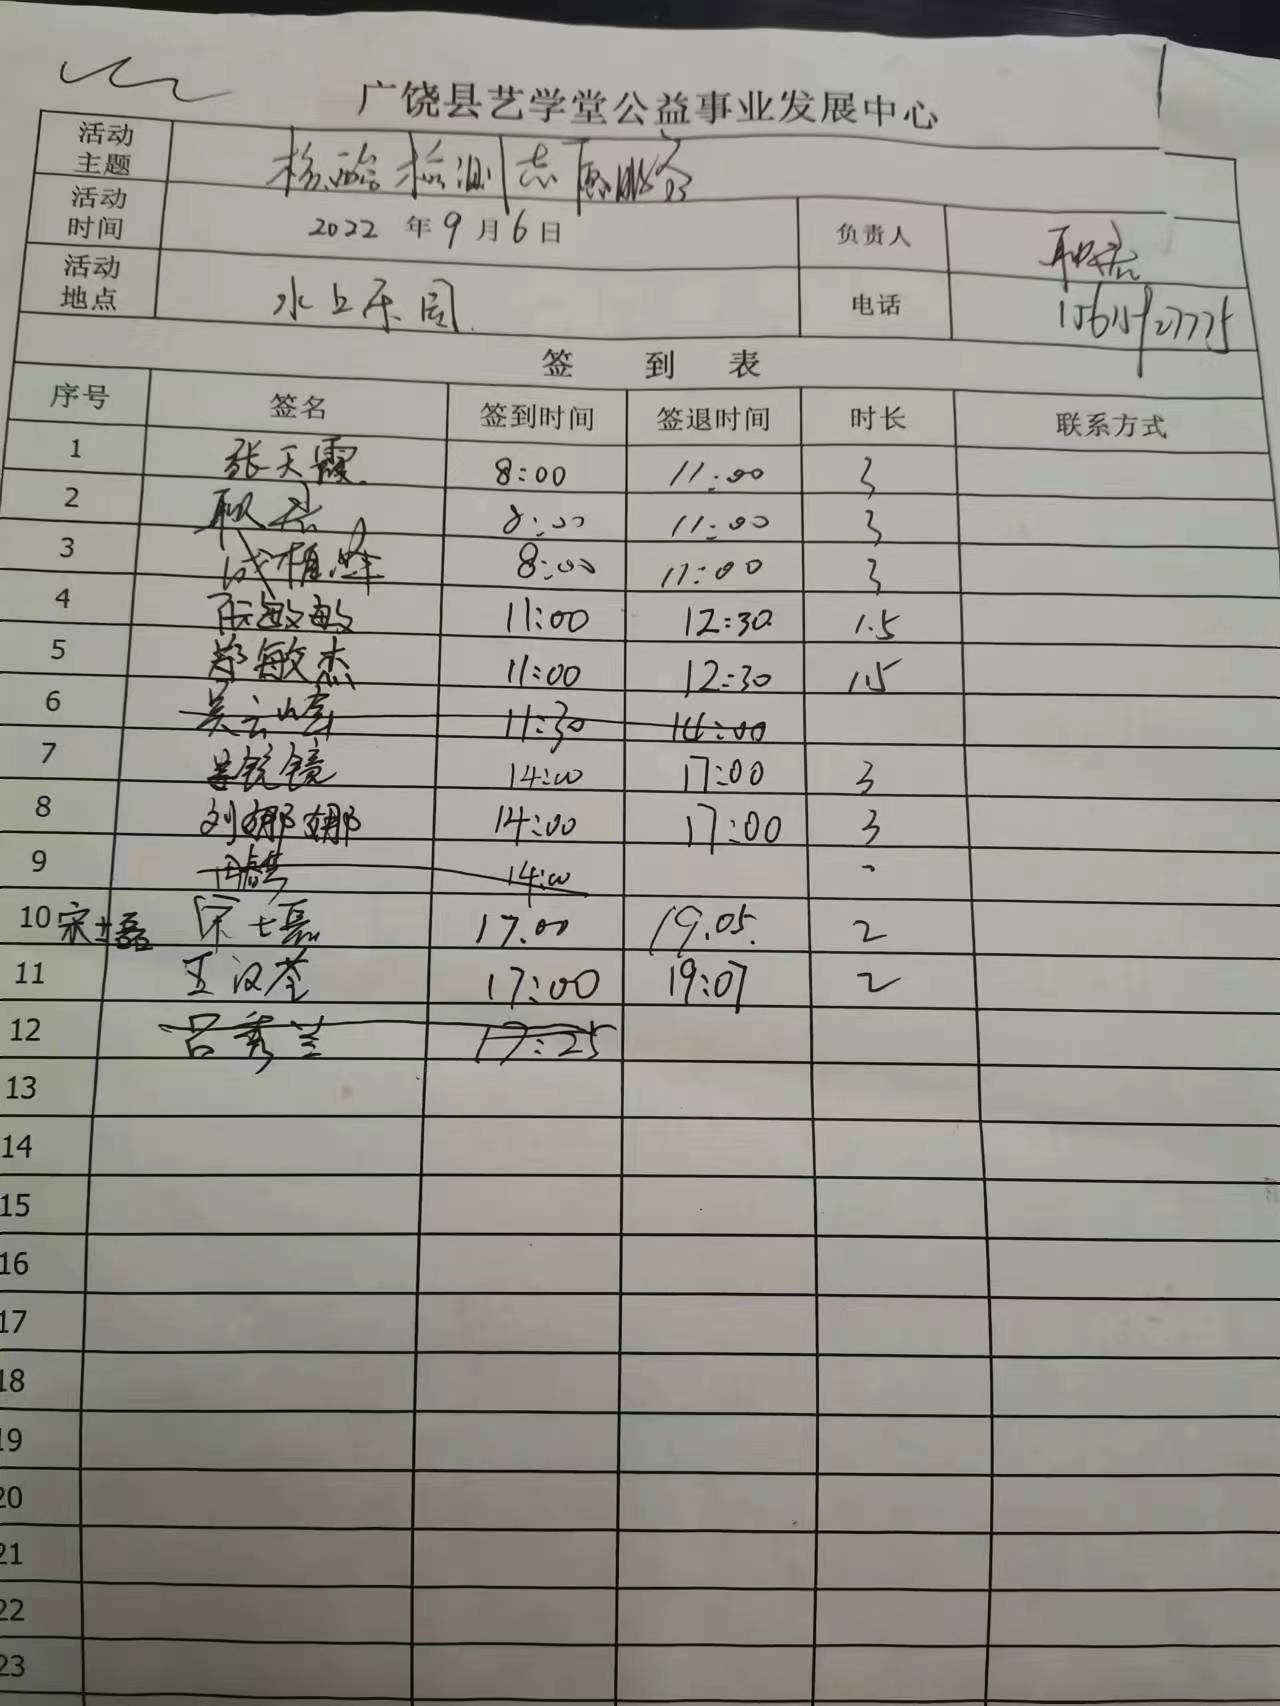 广饶县艺学堂公益事业发展中心
活动主题 核酸检测志愿服务
活动时间 2022 年 9 月 6 日 负责人
活动地点 水上乐园 电话
签 到 表
序号 签名 签到时间 签退时间 时长 联系方式
1 张天霞 8:00 11:00 3
2 8:00 11:00 3
3 8:00 11:00 3
4 敏敏 11:00 12:30 1.5
5 郑敏杰 11:00 12:30 1.5
6 11:30 14:00
7 镜 14:00 17:00 3
8 刘娜娜 14:00 17:00 3
9 14:00
10 宋士磊 宋士磊 17.00 19.05. 2
11 王汉荃 17:00 19:07 2
12 吕秀兰 17:25
13
14
15
16
17
18
19
20
21
22
23